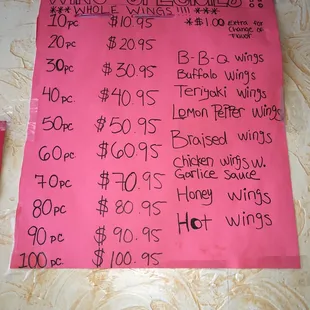 WING SPECIALS !!
*** WHOLE WINGS !!!! ***
*$1.00 Extra for change of flavor
10pc $10.95
20pc $20.95
30pc $30.95
40pc $40.95
50pc $50.95
60pc $60.95
70pc $70.95
80pc $80.95
90pc $90.95
100pc $100.95
B-B-Q wings
Buffalo wings
Teriyaki wings
Lemon Pepper wings
Braised wings
Chicken wings w.
Garlice sauce
Honey wings
Hot wings